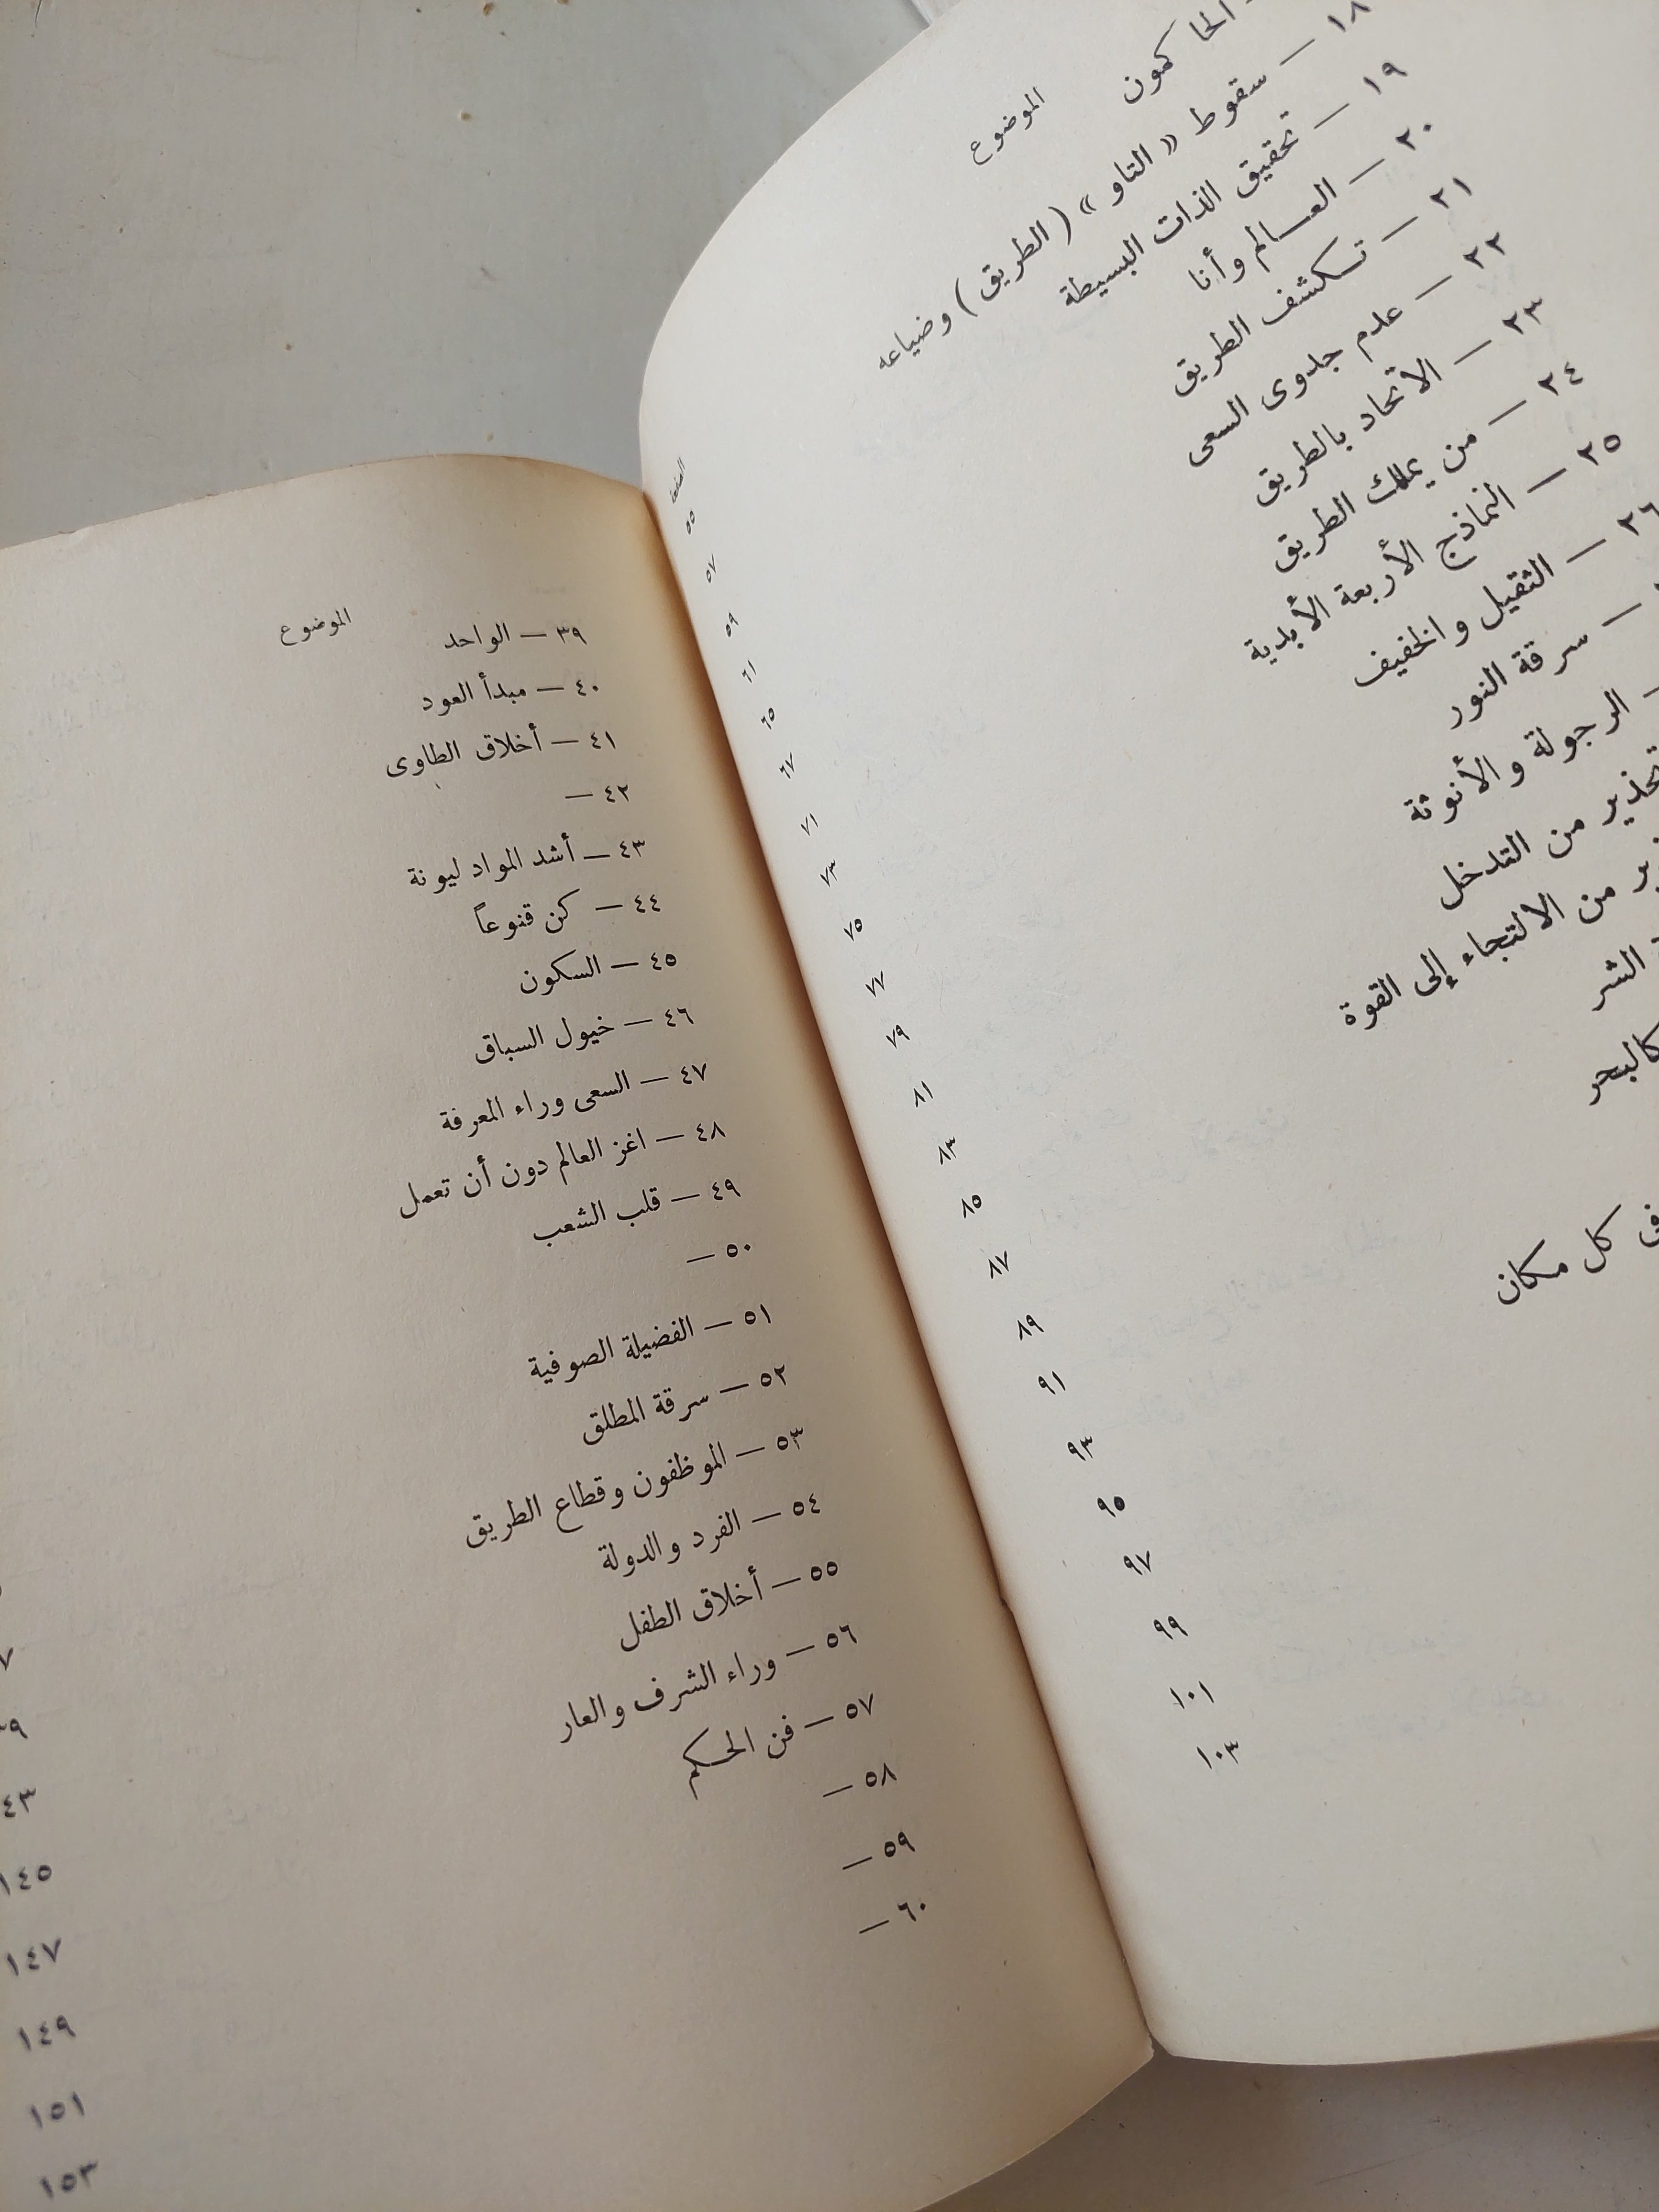 الموضوع
الحاكمون
١٨ — سقوط « التاو » ( الطريق ) وضياعه
١٩ — تحقيق الذات البسيطة
٢٠ — العالم وأنا
٢١ — تكشف الطريق
٢٢ — عدم جدوى السعى
٢٣ — الاتحاد بالطريق
٢٤ — من يملك الطريق
٢٥ — النماذج الأربعة الأبدية
٢٦ — الثقيل والخفيف
— سرقة النور
الرجولة والأنوثة
تحذير من التدخل
من الالتجاء إلى القوة
الشر
كالبحر
كل مكان
الصفحة
٥٥
٥٧
٥٩
٦١
٦٥
٦٧
٧١
٧٣
٧٥
٧٧
٧٩
٨١
٨٣
٨٥
٨٧
٨٩
٩١
٩٣
٩٥
٩٧
٩٩
١٠١
١٠٣
الموضوع
٣٩ — الواحد
٤٠ — مبدأ العود
٤١ — أخلاق الطاوى
٤٢ —
٤٣ — أشد المواد ليونة
٤٤ — كن قنوعاً
٤٥ — السكون
٤٦ — خيول السباق
٤٧ — السعى وراء المعرفة
٤٨ — اغز العالم دون أن تعمل
٤٩ — قلب الشعب
٥٠ —
٥١ — الفضيلة الصوفية
٥٢ — سرقة المطلق
٥٣ — الموظفون وقطاع الطريق
٥٤ — الفرد والدولة
٥٥ — أخلاق الطفل
٥٦ — وراء الشرف والعار
٥٧ — فن الحكم
٥٨ —
٥٩ —
٦٠ —
١٤٥
١٤٧
١٤٩
١٥١
١٥٣